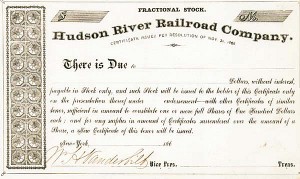 FRACTIONAL STOCK.
$ No.
Hudson River Railroad Company.
CERTIFICATE ISSUED PER RESOLUTION OF
There is Due to
Dollars, without interest,
payable in Stock only, and such Stock will be issued to the holder of this Certificate only
on the presentation thereof under endorsement with other Certificates of similar
tenor, sufficient in amount to constitute one or more full Shares of One Hundred Dollars
each; and for any surplus in amount of Certificates surrendered over the amount of a
Share, a new Certificate of this tenor will be issued.
New-York, 186
Vanderbilt Vice Pres. Treas.